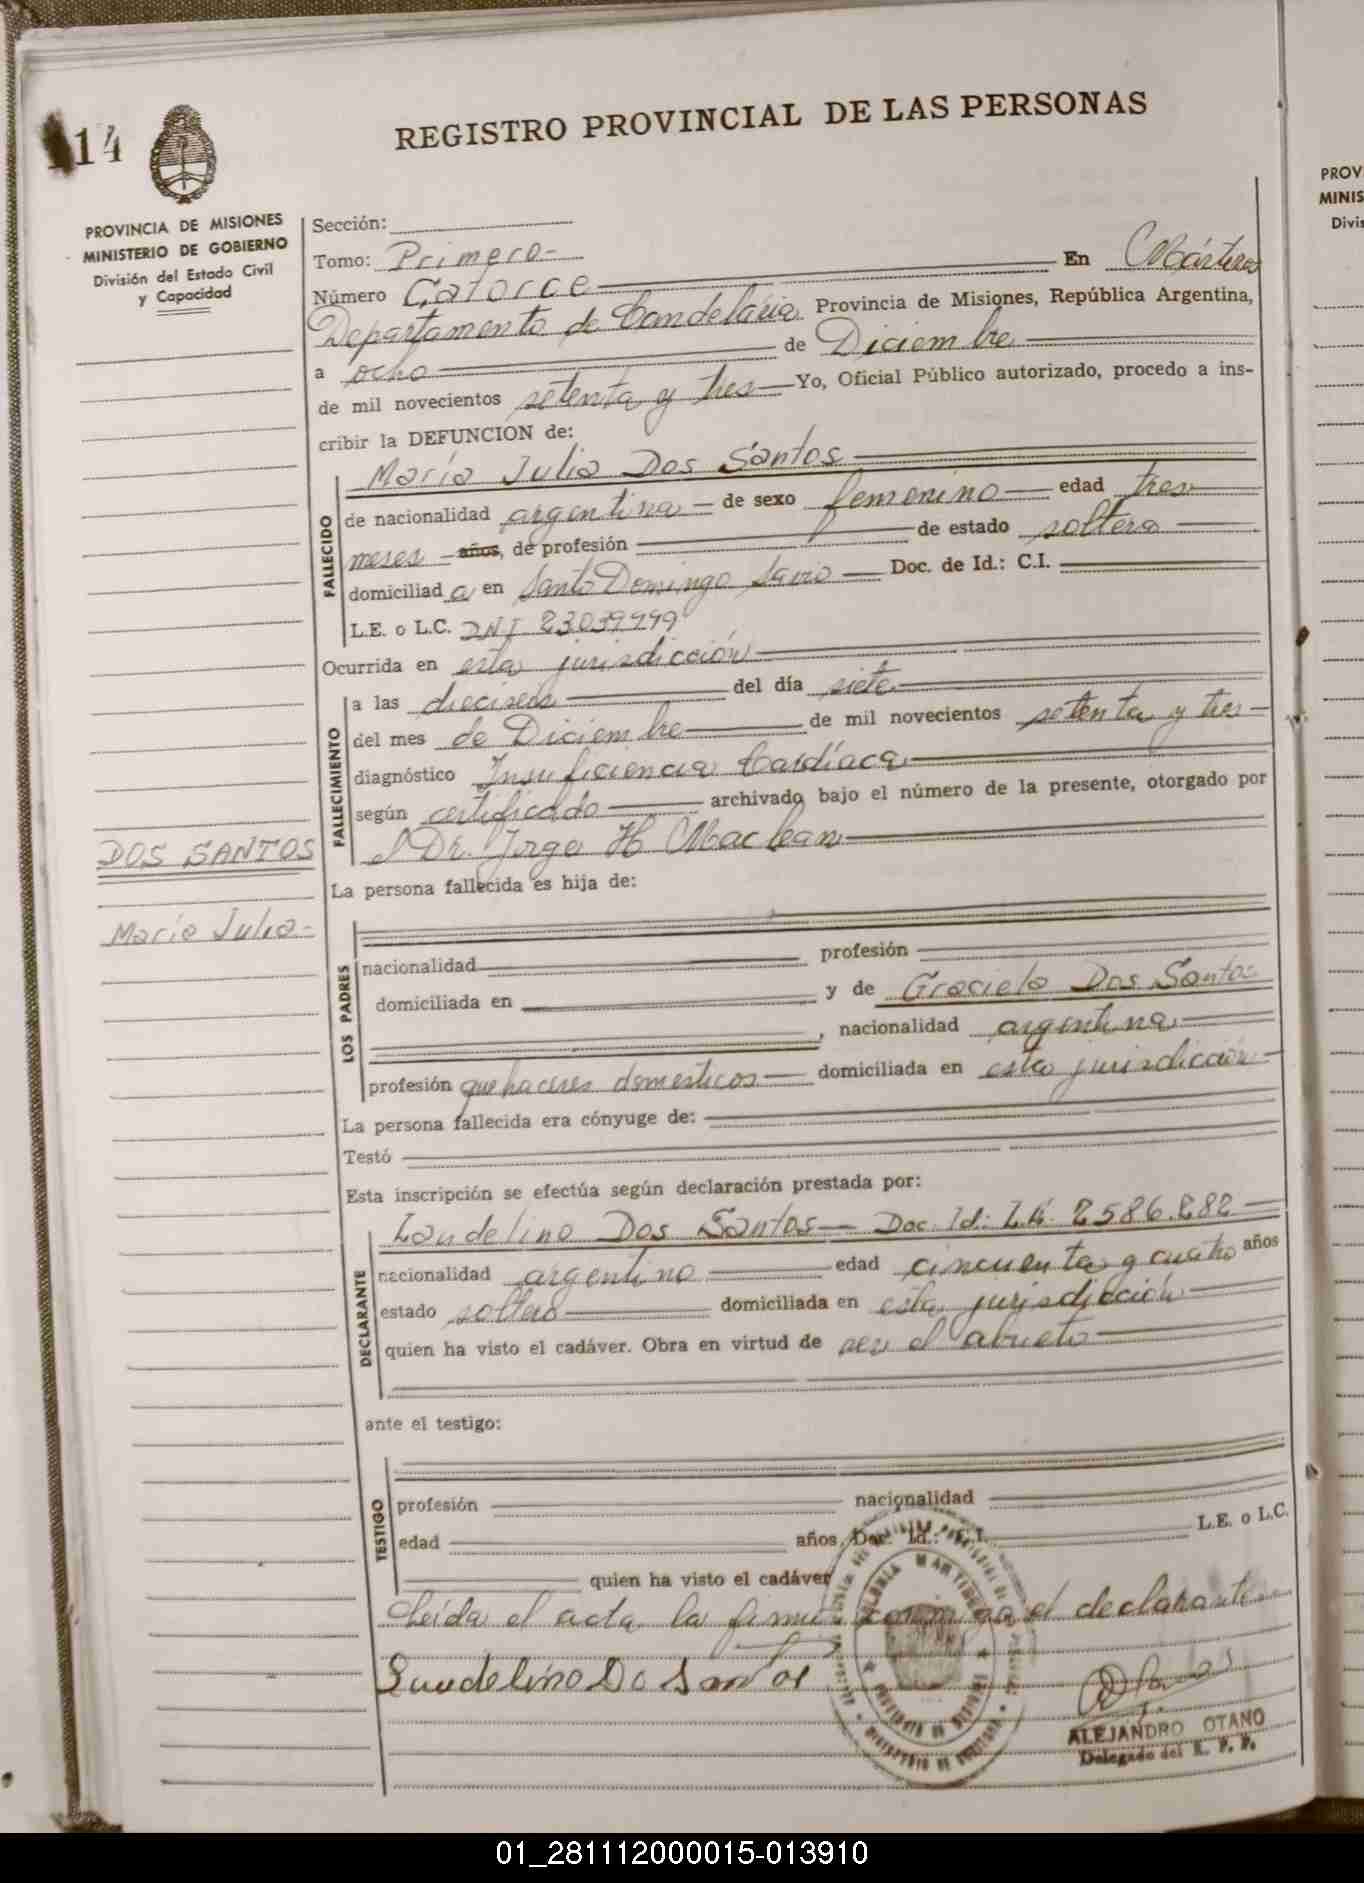 114
REGISTRO PROVINCIAL DE LAS PERSONAS
PROVINCIA DE MISIONES
MINISTERIO DE GOBIERNO
División del Estado Civil
y Capacidad
Sección:
Tomo: Primero-
Número Catorce En Mártires
Departamento de Candelaria Provincia de Misiones, República Argentina,
a ocho de Diciembre
de mil novecientos setenta y tres Yo, Oficial Público autorizado, procedo a ins-
cribir la DEFUNCION de:
FALLECIDO
María Julia Dos Santos
de nacionalidad argentina de sexo femenino edad tres
meses años, de profesión de estado soltera
domiciliad a en Santo Domingo Savio Doc. de Id.: C.I.
L.E. o L.C. DNI 23039999
Ocurrida en esta jurisdicción
FALLECIMIENTO
a las dieciseis del día siete
del mes de Diciembre de mil novecientos setenta y tres
diagnóstico Insuficiencia Cardíaca
según certificado archivado bajo el número de la presente, otorgado por
el Dr. Jorge H Maclean
DOS SANTOS
María Julia-
La persona fallecida es hija de:
LOS PADRES
nacionalidad profesión
domiciliada en y de Graciela Dos Santos
, nacionalidad argentina
profesión quehaceres domesticos domiciliada en esta jurisdicción
La persona fallecida era cónyuge de:
Testó
Esta inscripción se efectúa según declaración prestada por:
DECLARANTE
Laudelino Dos Santos Doc. Id: L.E. 2586.282
nacionalidad argentino edad cincuenta y cuatro años
estado soltero domiciliada en esta jurisdicción
quien ha visto el cadáver. Obra en virtud de ser el abuelo
ante el testigo:
TESTIGO
profesión nacionalidad
edad años, Doc. Id.: C.I. L.E. o L.C.
quien ha visto el cadáver
Leída el acta la firma conmigo el declarante
Laudelino Do Santos
COLONIA MARTIRES
PROVINCIA DE MISIONES
MINISTERIO DE GOBIERNO
ALEJANDRO OTANO
Delegado del R. P. P.
PROV
MINIS
Divis
01_281112000015-013910